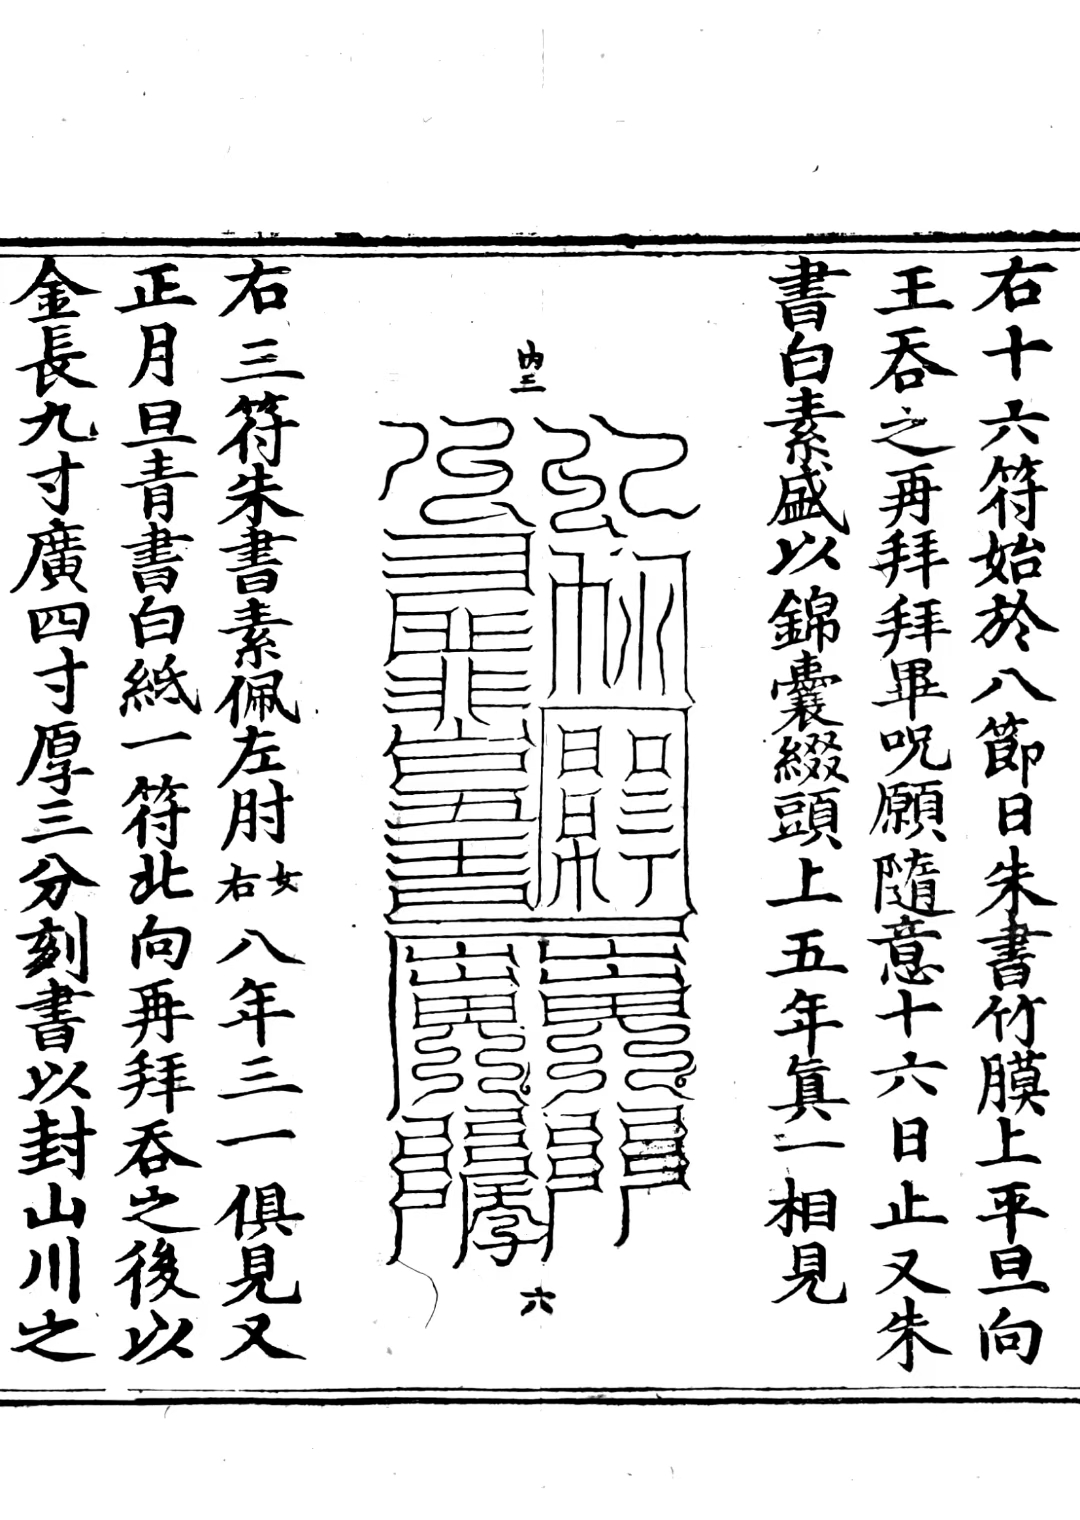 右十六符始於八節日朱書竹膜上平旦向
王吞之再拜拜畢呪願隨意十六日止又朱
書白素盛以錦囊綴頭上五年真一相見
内三
六
右三符朱書素佩左肘女右八年三一俱見又
正月旦青書白紙一符北向再拜吞之後以
金長九寸廣四寸厚三分刻書以封山川之